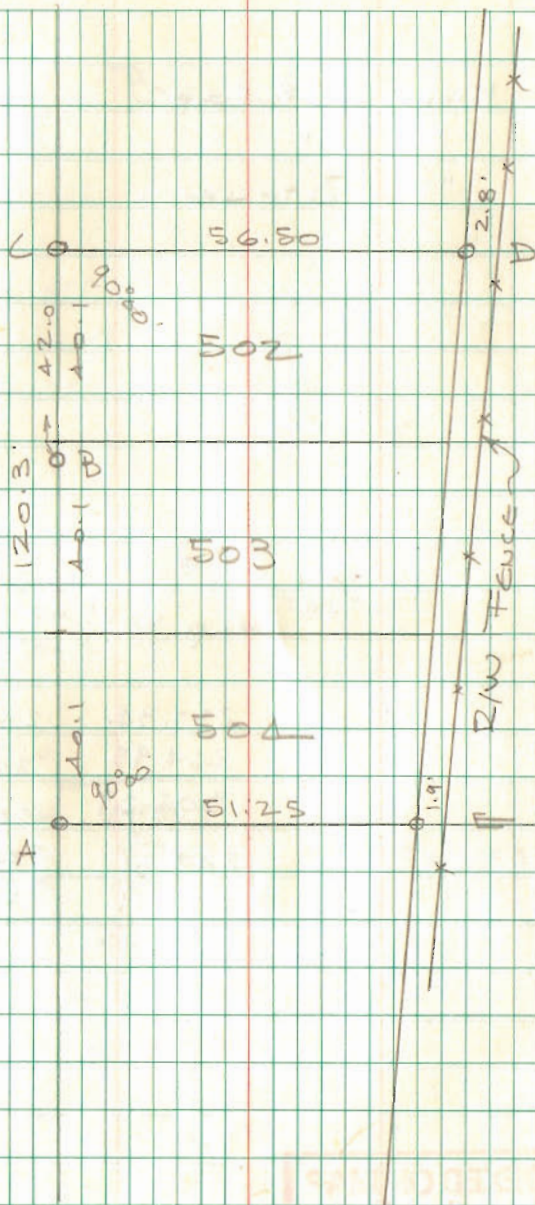 C
56.50
D
2.8'
90°00'
42.0
40.1
502
B
120.3'
40.1
503
R/W FENCE
504
40.1
90°00'
51.25
1.9'
E
A